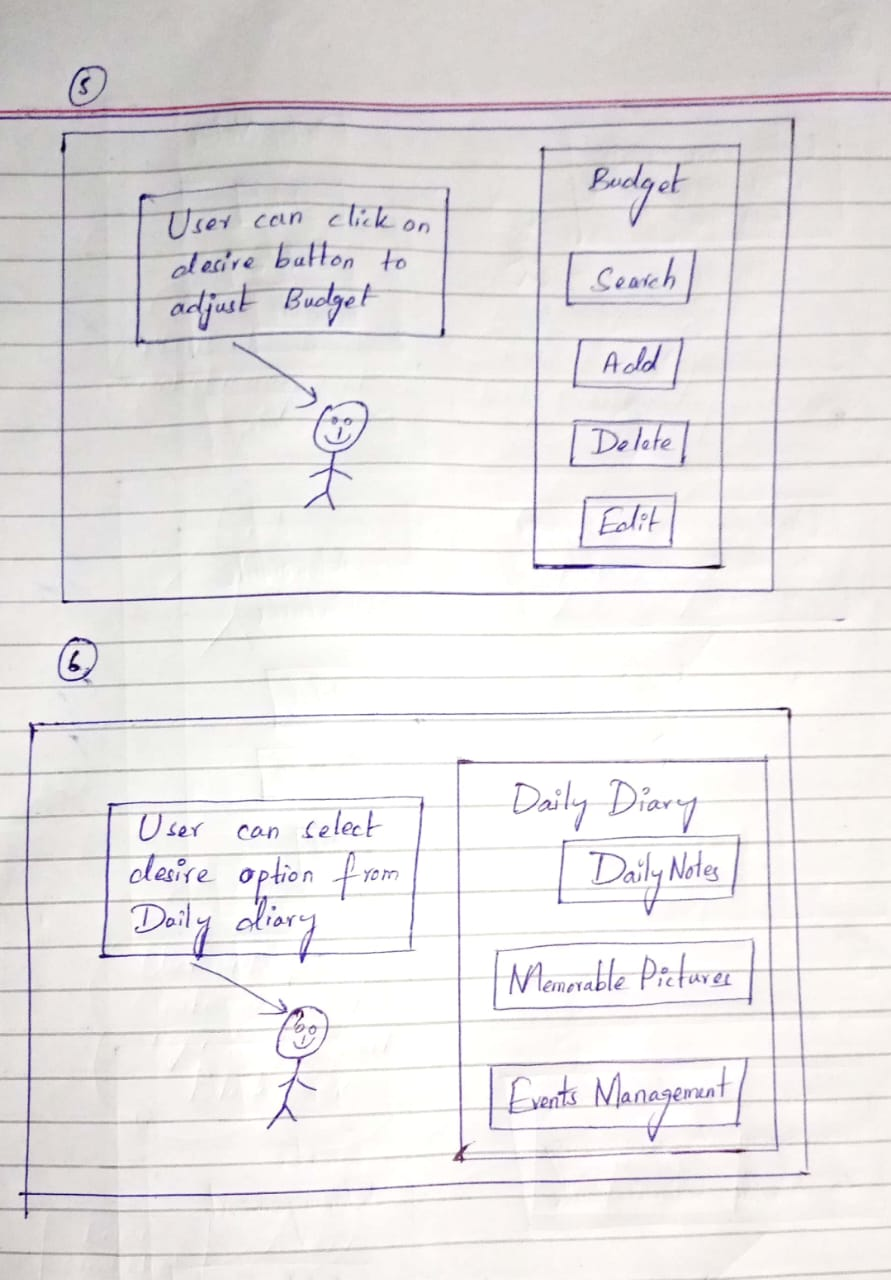 5
User can click on
desire button to
adjust Budget
Budget
Search
Add
Delete
Edit
6
User can select
desire option from
Daily diary
Daily Diary
Daily Notes
Memorable Pictures
Events Management